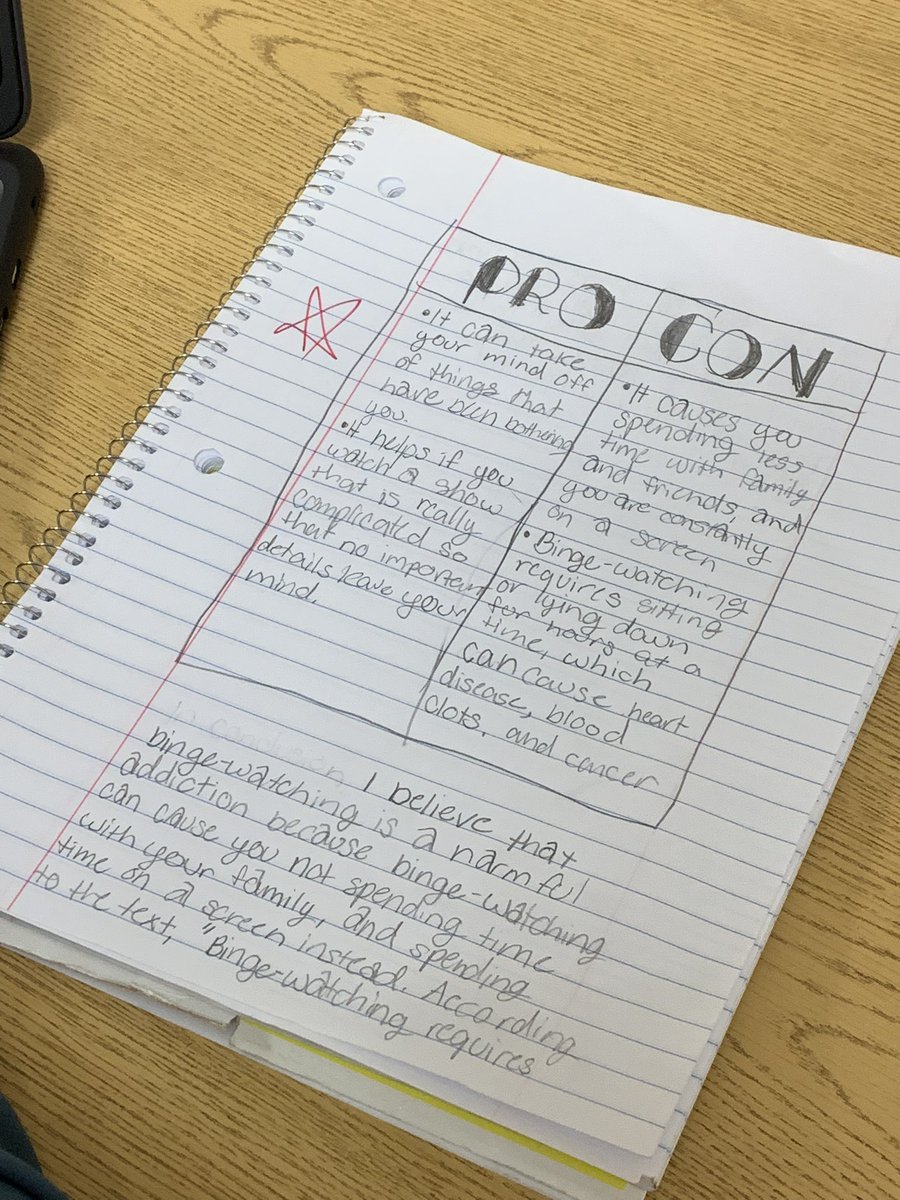 PRO
• It can take
your mind off
of things that
have been bothering
you.
• It helps if you
watch a show
that is really
complicated so
that no important
details leave your
mind.
CON
• It causes you
spending less
time with family
and friends, and
you are constantly
on a screen
• Binge-watching
requires sitting
or lying down
for hours at a
time, which
can cause heart
disease, blood
clots, and cancer
In conclusion I believe that
binge-watching is a harmful
addiction because binge-watching
can cause you not spending time
with your family, and spending
time on a screen instead. According
to the text, "Binge-watching requires